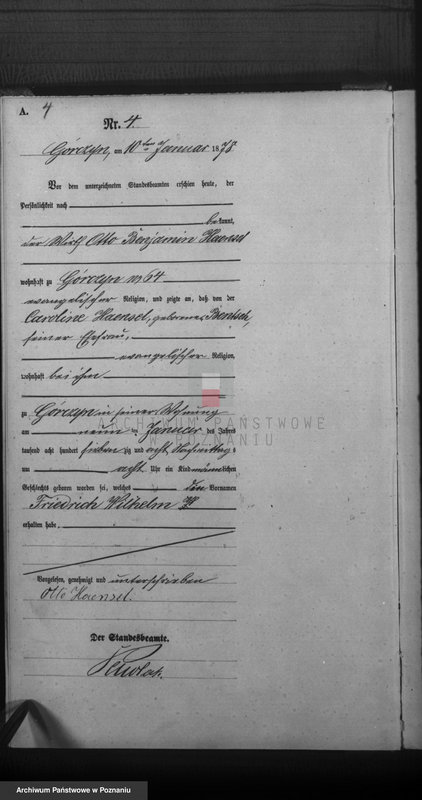 A. 4
Nr. 4
Górczyn, am 10ten Januar 1878
Vor dem unterzeichneten Standesbeamten erschien heute, der
Persönlichkeit nach
bekannt,
der Wirth Otto Benjamin Haensel
wohnhaft zu Górczyn № 64
evangelischer Religion, und zeigte an, daß von der
Caroline Haensel, geborenen Bentsch,
seiner Ehefrau,
evangelischer Religion,
wohnhaft bei ihm
zu Górczyn in seiner Wohnung
am neunten Januar des Jahres
tausend acht hundert siebenzig und acht Nachmittags
um acht Uhr ein Kind männlichen
Geschlechts geboren worden sei, welches den Vornamen
Friedrich Wilhelm
erhalten habe,
Vorgelesen, genehmigt und unterschrieben
Otto Haensel.
Der Standesbeamte.
ARCHIWUM PAŃSTWOWE
W POZNANIU
Archiwum Państwowe w Poznaniu